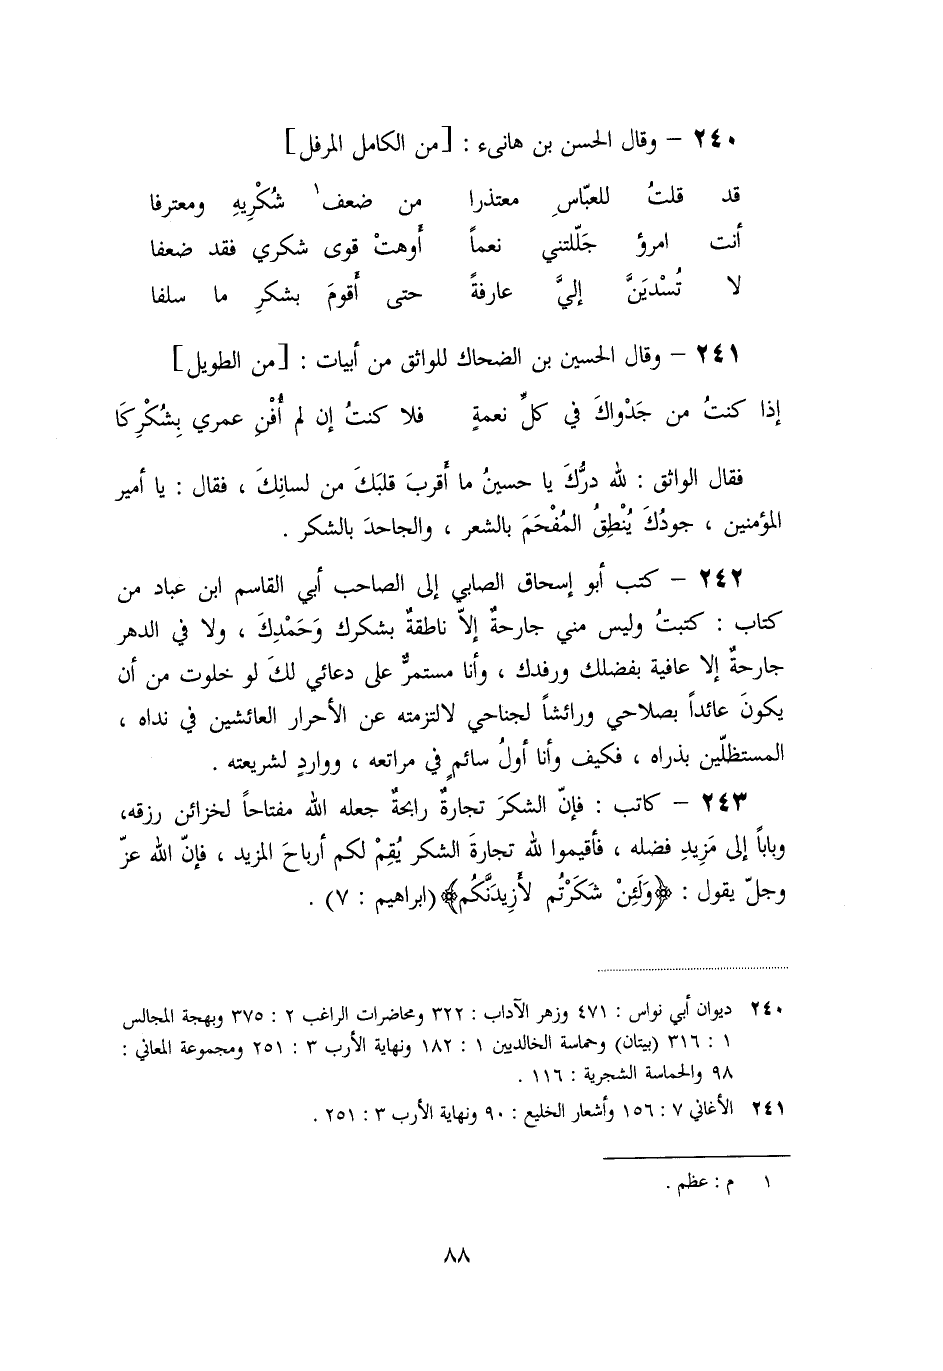 ٢٤٠ – وقال الحسن بن هانىء : [من الكامل المرفل]
قد قلتُ للعبّاسِ معتذرا من ضعف١ شُكْرِيهِ ومعترفا
أنت امرؤ جَلّلتني نعماً أَوهتْ قوى شكري فقد ضعفا
لا تُسْدَيَنَّ إليَّ عارفةً حتى أَقومَ بشكرِ ما سلفا
٢٤١ – وقال الحسين بن الضحاك للواثق من أبيات : [من الطويل]
إذا كنتُ من جَدْواكَ في كلِّ نعمةٍ فلا كنتُ إن لم أُفْنِ عمري بِشُكْرِكَا
فقال الواثق : لله درُّكَ يا حسينُ ما أَقربَ قلبَكَ من لسانِكَ ، فقال : يا أمير
المؤمنين ، جودُكَ يُنْطِقُ المُفْحَمَ بالشعر ، والجاحدَ بالشكر .
٢٤٢ – كتب أبو إسحاق الصابي إلى الصاحب أبي القاسم ابن عباد من
كتاب : كتبتُ وليس مني جارحةٌ إلاّ ناطقةٌ بشكرك وَحَمْدِكَ ، ولا في الدهر
جارحةٌ إلا عافية بفضلك ورفدك ، وأنا مستمرٌّ على دعائي لكَ لو خلوت من أن
يكونَ عائداً بصلاحي ورائشاً لجناحي لالتزمته عن الأحرار العائشين في نداه ،
المستظلّين بذراه ، فكيف وأنا أولُ سائمٍ في مراتعه ، وواردٍ لشريعته .
٢٤٣ – كاتب : فإنّ الشكرَ تجارةٌ رابحةٌ جعله الله مفتاحاً لخزائن رزقه،
وباباً إلى مَزِيدِ فضله ، فأقيموا لله تجارةَ الشكر يُقِمْ لكم أرباحَ المزيد ، فإنّ الله عزّ
وجلّ يقول : ﴿وَلَئِنْ شَكَرْتُم لأَزِيدَنَّكُم﴾ (ابراهيم : ٧) .
٢٤٠ ديوان أبي نواس : ٤٧١ وزهر الآداب : ٣٢٢ ومحاضرات الراغب ٢ : ٣٧٥ وبهجة المجالس
١ : ٣١٦ (بيتان) وحماسة الخالديين ١ : ١٨٢ ونهاية الأرب ٣ : ٢٥١ ومجموعة المعاني :
٩٨ والحماسة الشجرية : ١١٦ .
٢٤١ الأغاني ٧ : ١٥٦ وأشعار الخليع : ٩٠ ونهاية الأرب ٣ : ٢٥١ .
١ م : عظم .
٨٨